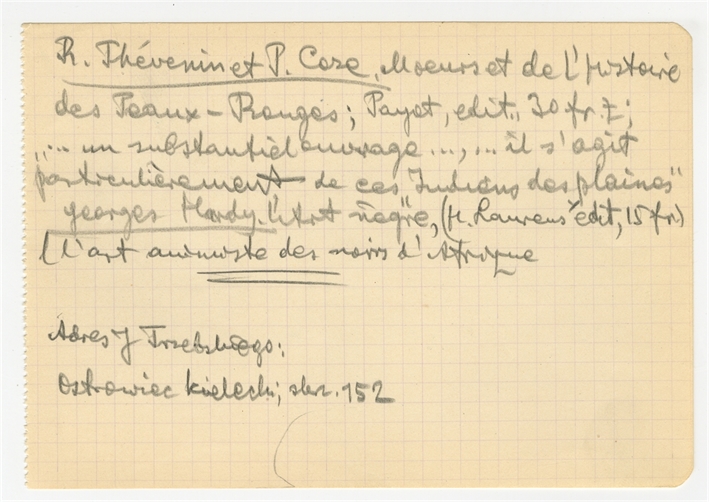 R. Thévenin et P. Coze, Moeurs et de l'histoire
des Peaux-Rouges; Payot, edit., 30 fr.;
„... un substantiel ouvrage ..., ... il s'agit
particulièrement de ces Indiens des plaines"
Georges Hardy. L'Art nègre, (H. Laurens edit, 15 fr.)
(l'art animiste des noirs d'Afrique
Adres J Trzebskiego:
Ostrowiec kielecki; skrz. 152